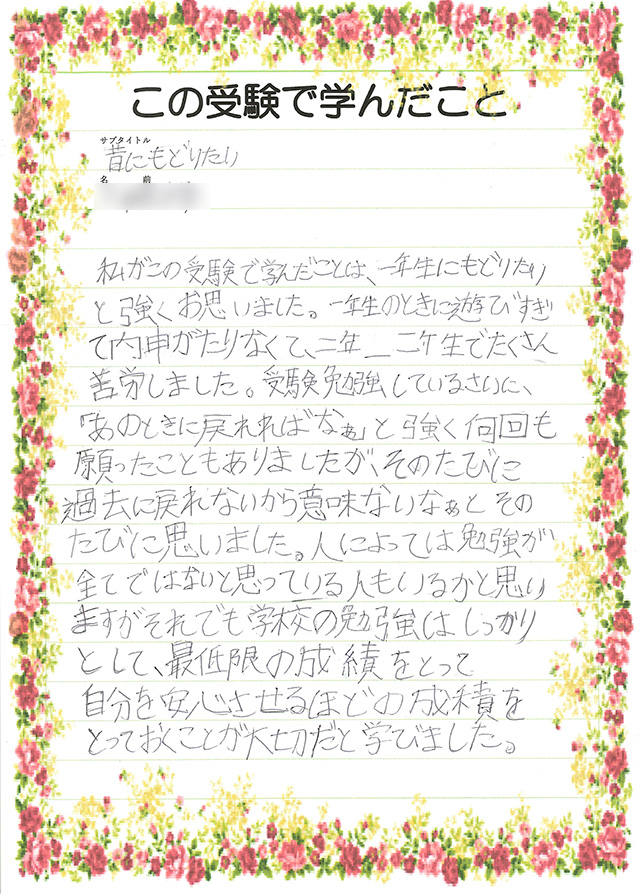 この受験で学んだこと
サブタイトル
昔にもどりたい
名 前
私がこの受験で学んだことは、一年生にもどりたい
と強くお思いました。一年生のときに遊びすぎ
て内申がたりなくて、二年_二年生でたくさん
苦労しました。受験勉強しているさいに、
「あのときに戻れればなぁ」と強く何回も
願ったこともありましたが、そのたびに
過去に戻れないから意味ないなぁとその
たびに思いました。人によっては勉強が
全てではないと思っている人もいるかと思い
ますがそれでも学校の勉強はしっかり
として、最低限の成績をとって
自分を安心させるほどの成績を
とっておくことが大切だと学びました。